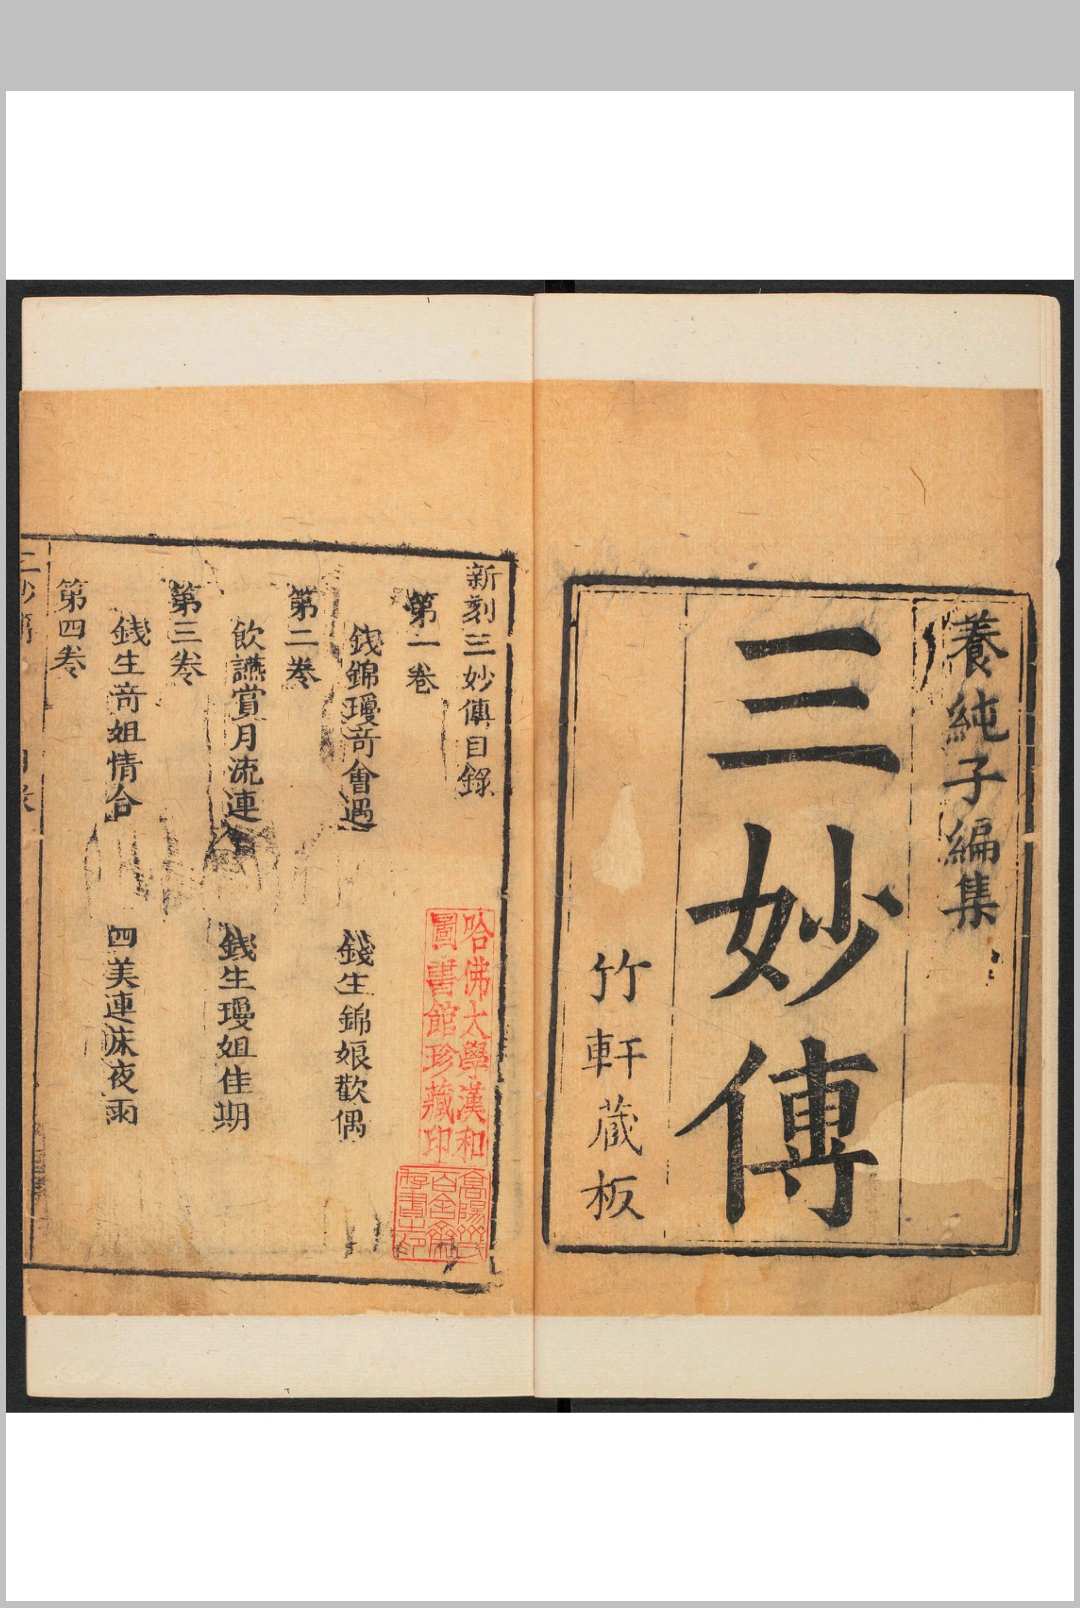 養純子編集
三妙傳
竹軒蔵板
新刻三妙傳目錄
第一卷
錢錦瓊奇會遇　錢生錦娘歡偶
第二卷
飲讌賞月流連　錢生瓊姐佳期
第三卷
錢生奇姐情合　四美連床夜雨
第四卷
哈佛大學漢和
圖書館珍藏印
高陽
百舍齋
存書